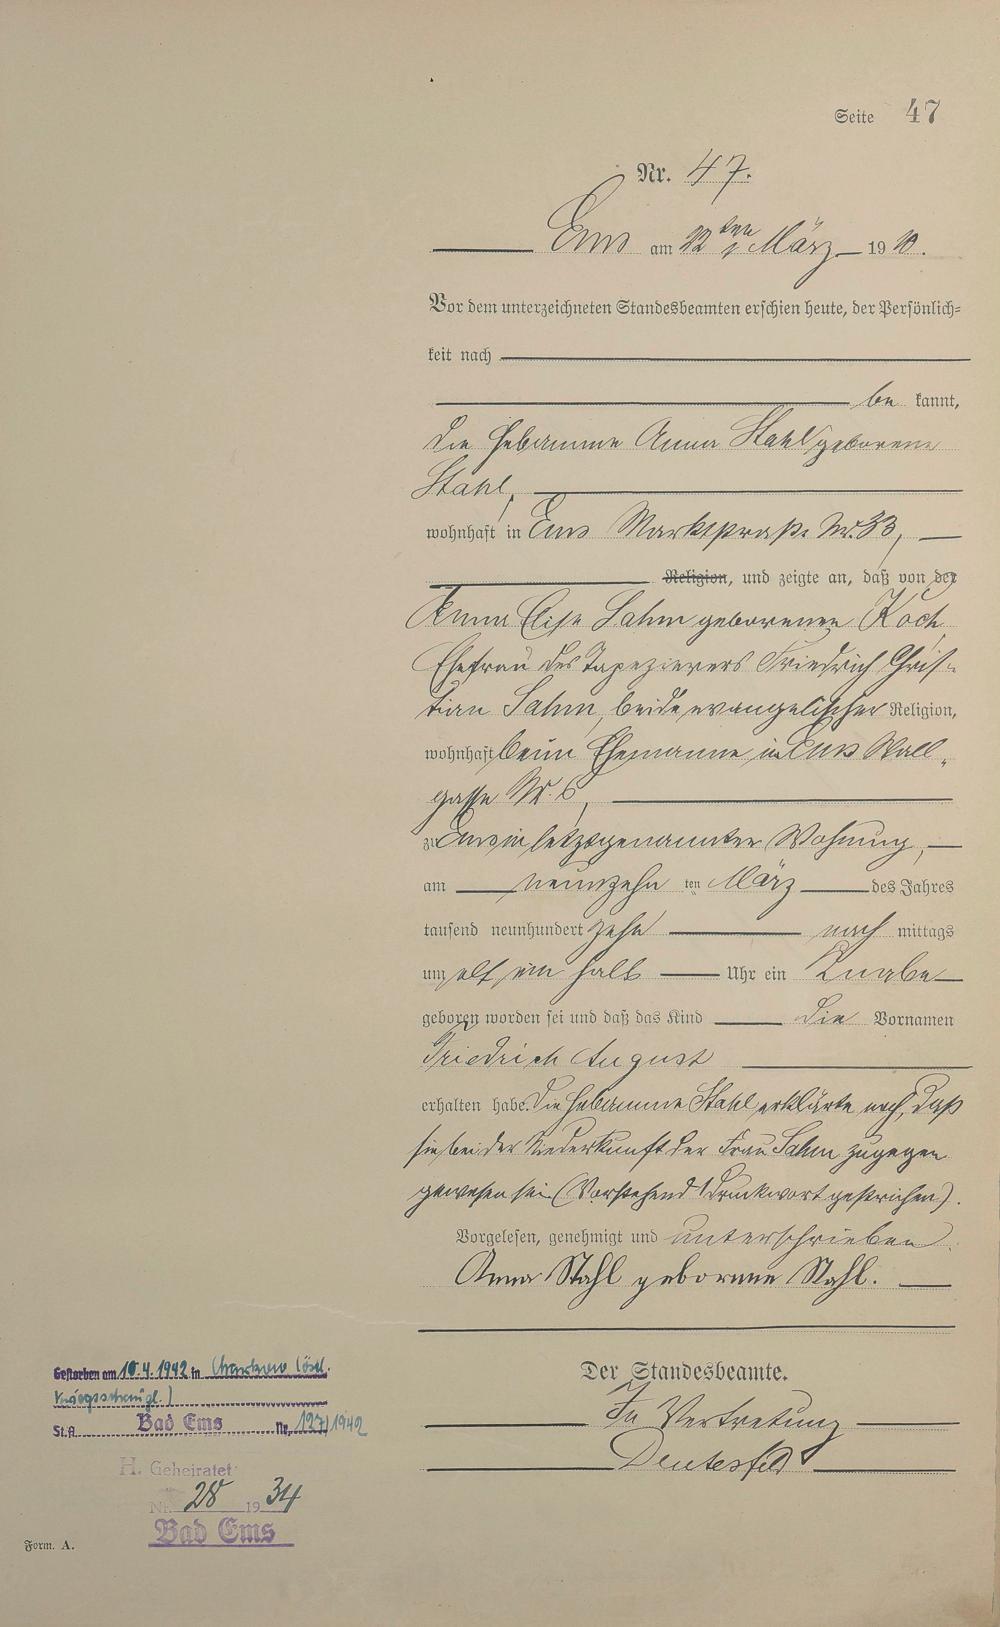 Seite 47
Nr. 47.
Ems am 22ten März 1910.
Vor dem unterzeichneten Standesbeamten erschien heute, der Persönlich=
keit nach
be kannt,
die Hebamme Anna Stahl geborene
Stahl,
wohnhaft in Ems Marktstraße Nr. 33,
Religion, und zeigte an, daß von der
Anna Elise Sahm geborenen Koch
Ehefrau des Tapezierers Friedrich Chris-
tian Sahm, beide evangelischer Religion,
wohnhaft beim Ehemanne in Ems Wall-
gasse Nr. 6,
zu Ems in letztgenannter Wohnung,
am neunzehn ten März des Jahres
tausend neunhundert zehn nach mittags
um elf ein halb Uhr ein Knabe
geboren worden sei und daß das Kind die Vornamen
Friedrich August
erhalten habe. Die Hebamme Stahl erklärte noch, daß
sie bei der Niederkunft der Frau Sahm zugegen
gewesen sei. (Vorstehend 1 Druckwort gestrichen).
Vorgelesen, genehmigt und unterschrieben.
Anna Stahl geborene Stahl.
Der Standesbeamte.
In Vertretung
Gestorben am 10.4.1942 in Charkow
St.A. Bad Ems Nr. 127/1942
H. Geheiratet
Nr. 28 1934
Bad Ems
Form. A.